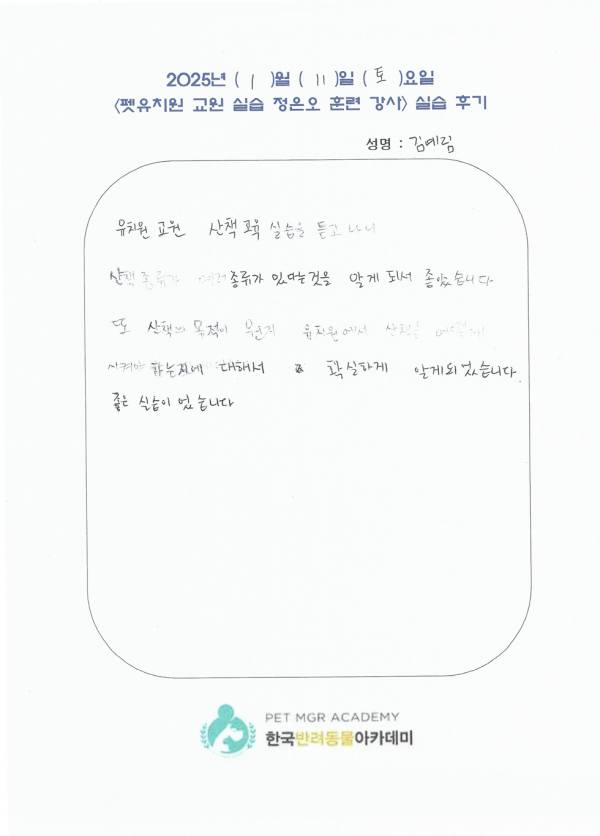 2025년 ( 1 )월 ( 11 )일 ( 토 )요일
<펫유치원 교원 실습 정은오 훈련 강사> 실습 후기
성명 : 김예림
유치원 교원 산책 교육 실습을 듣고 나니
산책 종류가 여러 종류가 있다는것을 알게 되서 좋았습니다
또 산책의 목적이 무언지 유치원에서 산책을 어떻게
시켜야 하는지에 대해서 확실하게 알게되었습니다.
좋은 실습이 었습니다
PET MGR ACADEMY
한국반려동물아카데미